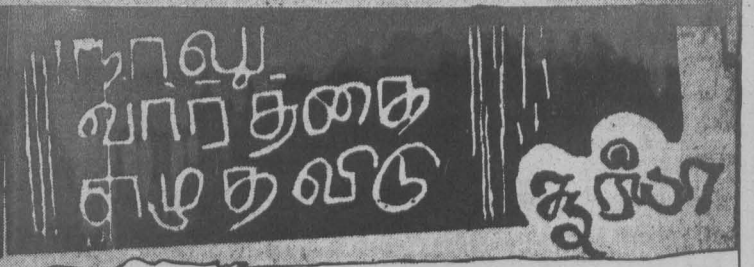 நாலு
வார்த்தை
எழுதவிடு
சூர்யா